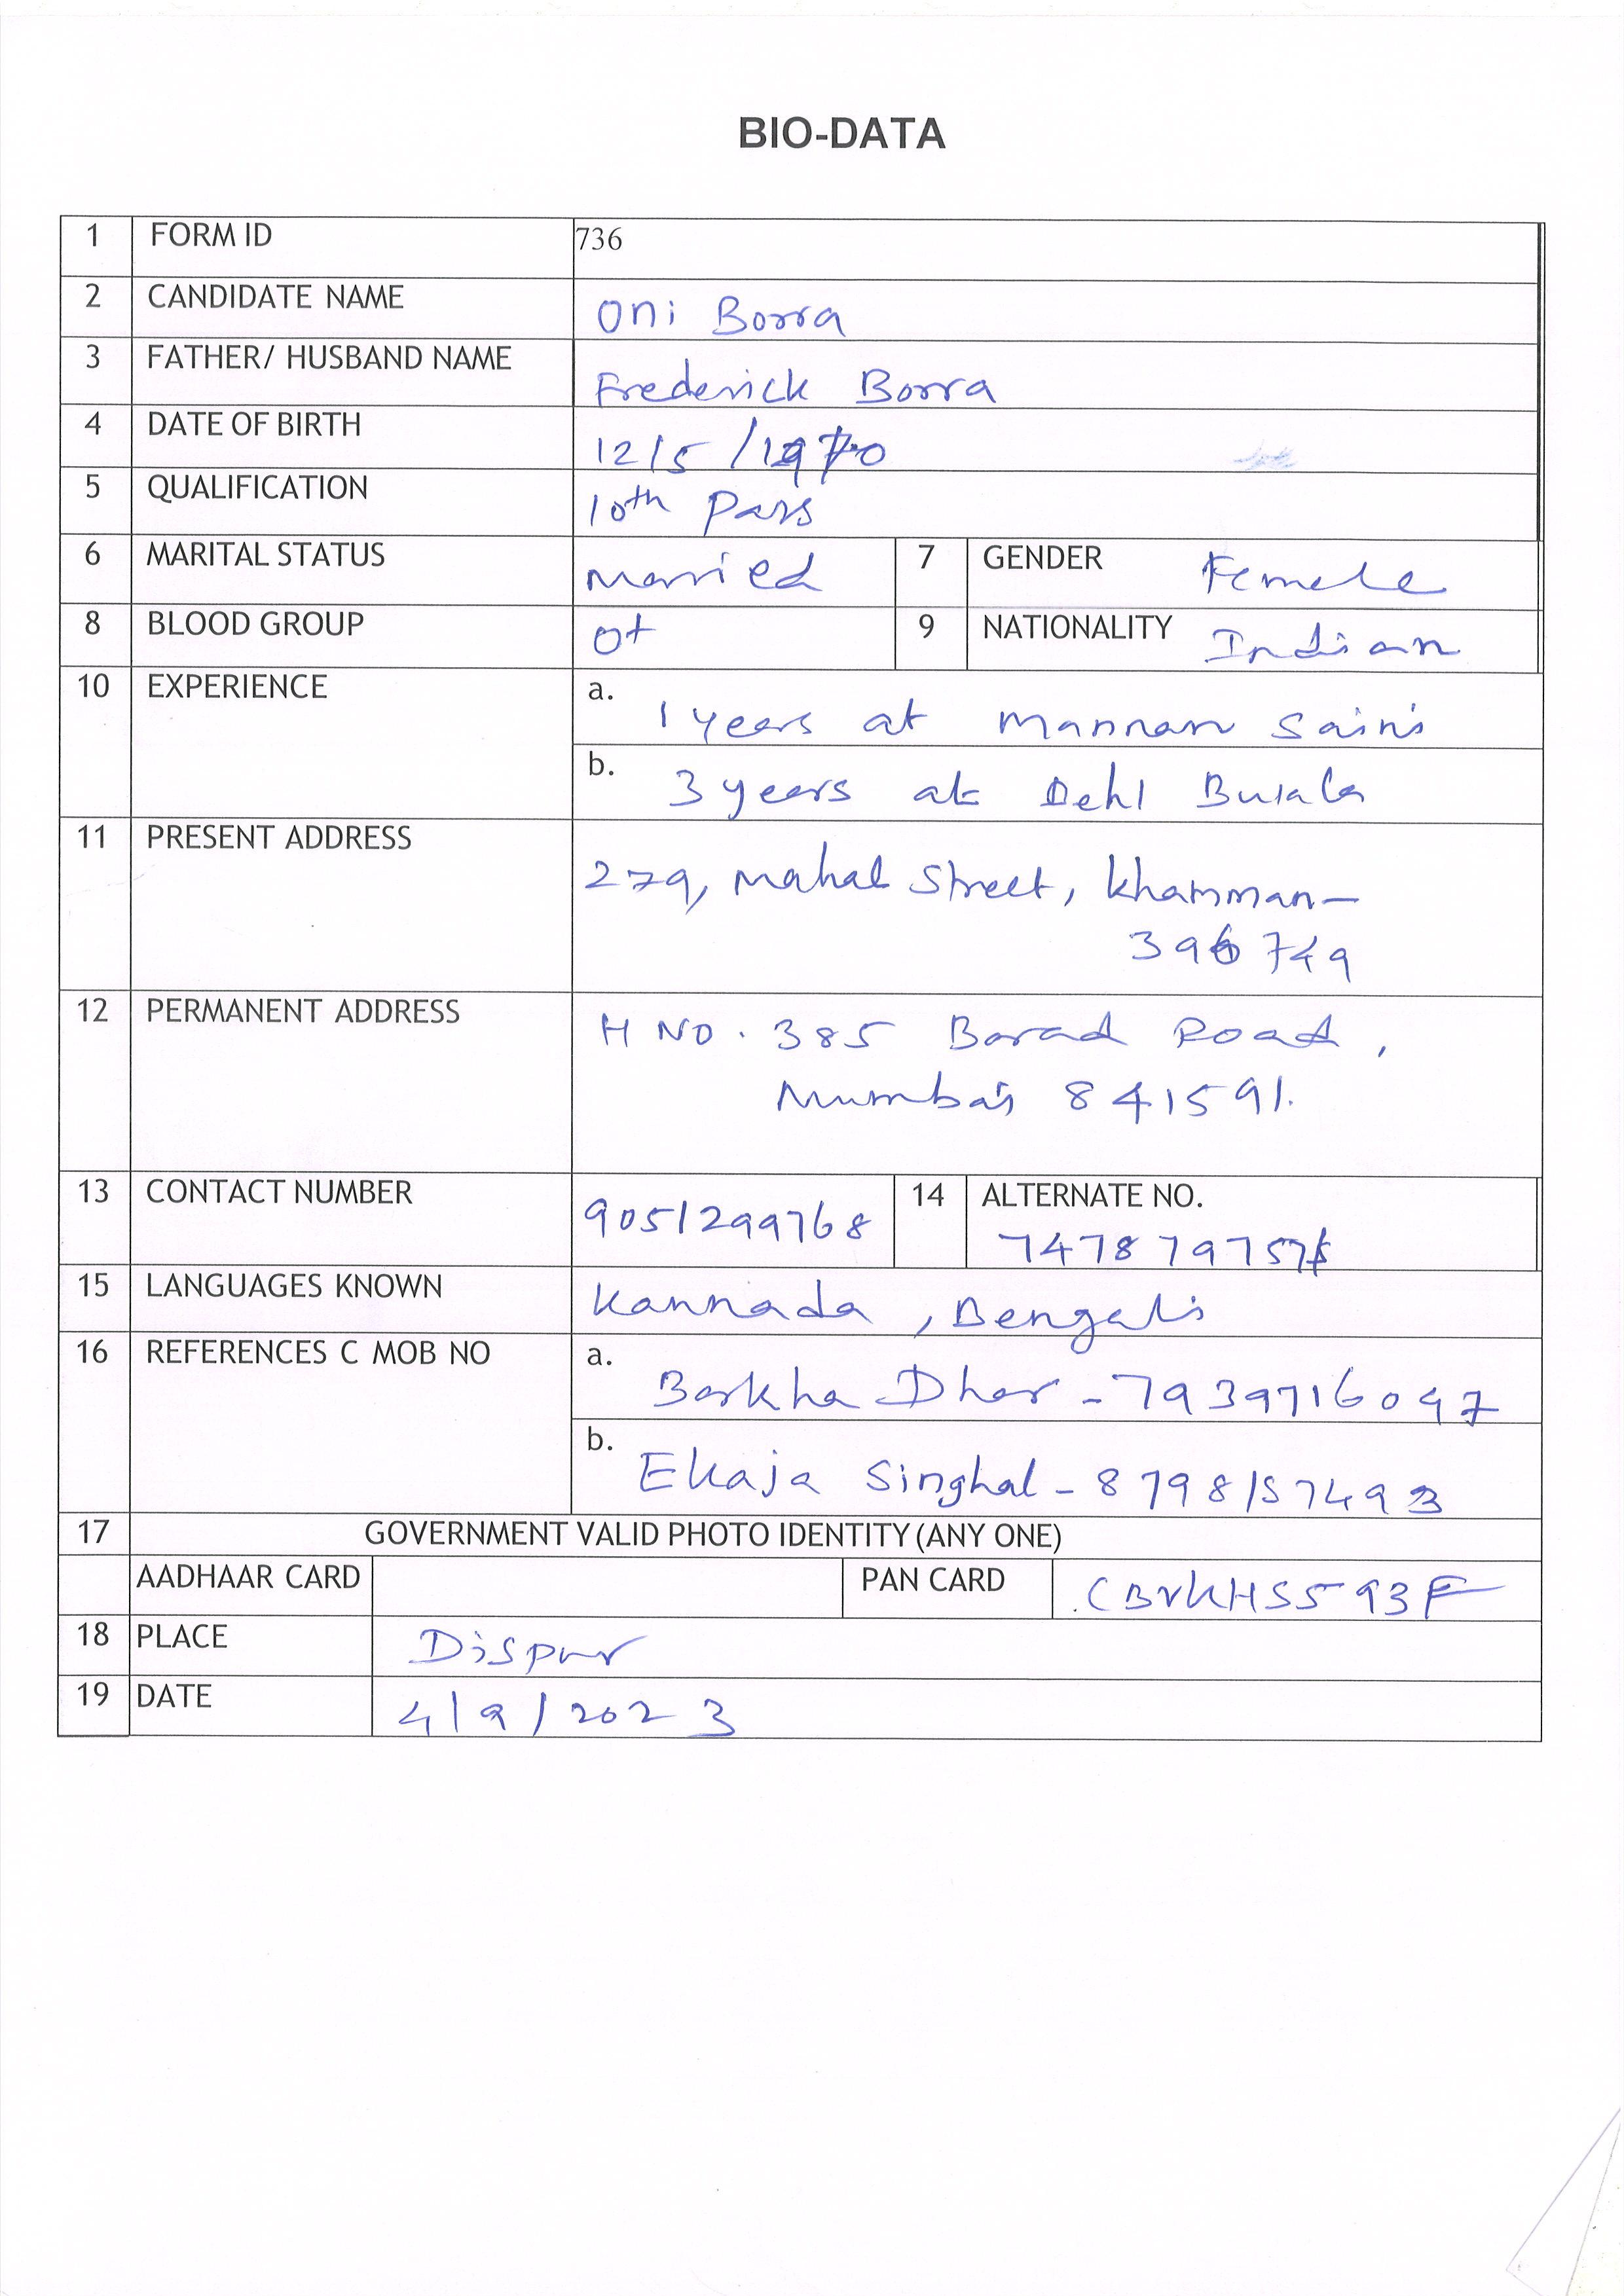 BIO-DATA
1 FORM ID 736
2 CANDIDATE NAME Oni Borra
3 FATHER/ HUSBAND NAME Frederick Borra
4 DATE OF BIRTH 12/5/1970
5 QUALIFICATION 10th Pass
6 MARITAL STATUS Married 7 GENDER Female
8 BLOOD GROUP O+ 9 NATIONALITY Indian
10 EXPERIENCE a. 1 years at Mannan Saini
b. 3 years at Dehl
11 PRESENT ADDRESS 279, Mahal Street, Khamman-
396749
12 PERMANENT ADDRESS H NO. 385 Barad Road,
Mumbai 841591.
13 CONTACT NUMBER 9051299768 14 ALTERNATE NO.
15 LANGUAGES KNOWN Kannada, Bengali
16 REFERENCES C MOB NO a. Barkha Dhar - 7939716047
b. Ekaja Singhal - 8798157493
17 GOVERNMENT VALID PHOTO IDENTITY (ANY ONE)
AADHAAR CARD PAN CARD
18 PLACE Dispur
19 DATE 4/9/2023